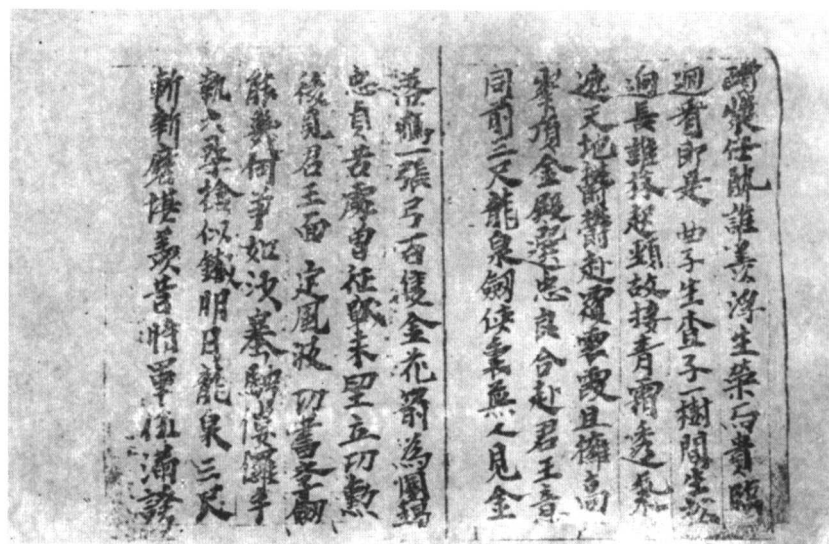 醑漿任酌誰羨浮生榮与貴臨
迴看即是 曲子生查子一樹間生松
迥長誰孫起頸故接青霄透氣
遮天地鬱鬱赴覆雲霞且擁高
峯頂金殿選忠良合赴君王意
同前三尺龍泉劍俠裏無人見金
落鴈一張弓百隻金花箭為國竭
忠貞苦處曾征戰未望立功勳
後見君王面 定風波 功書學劍
能幾何爭如沙塞騁僂儸手
執六尋槍似鐵明日龍泉三尺
斬新磨堪羨昔時軍伍滿誇